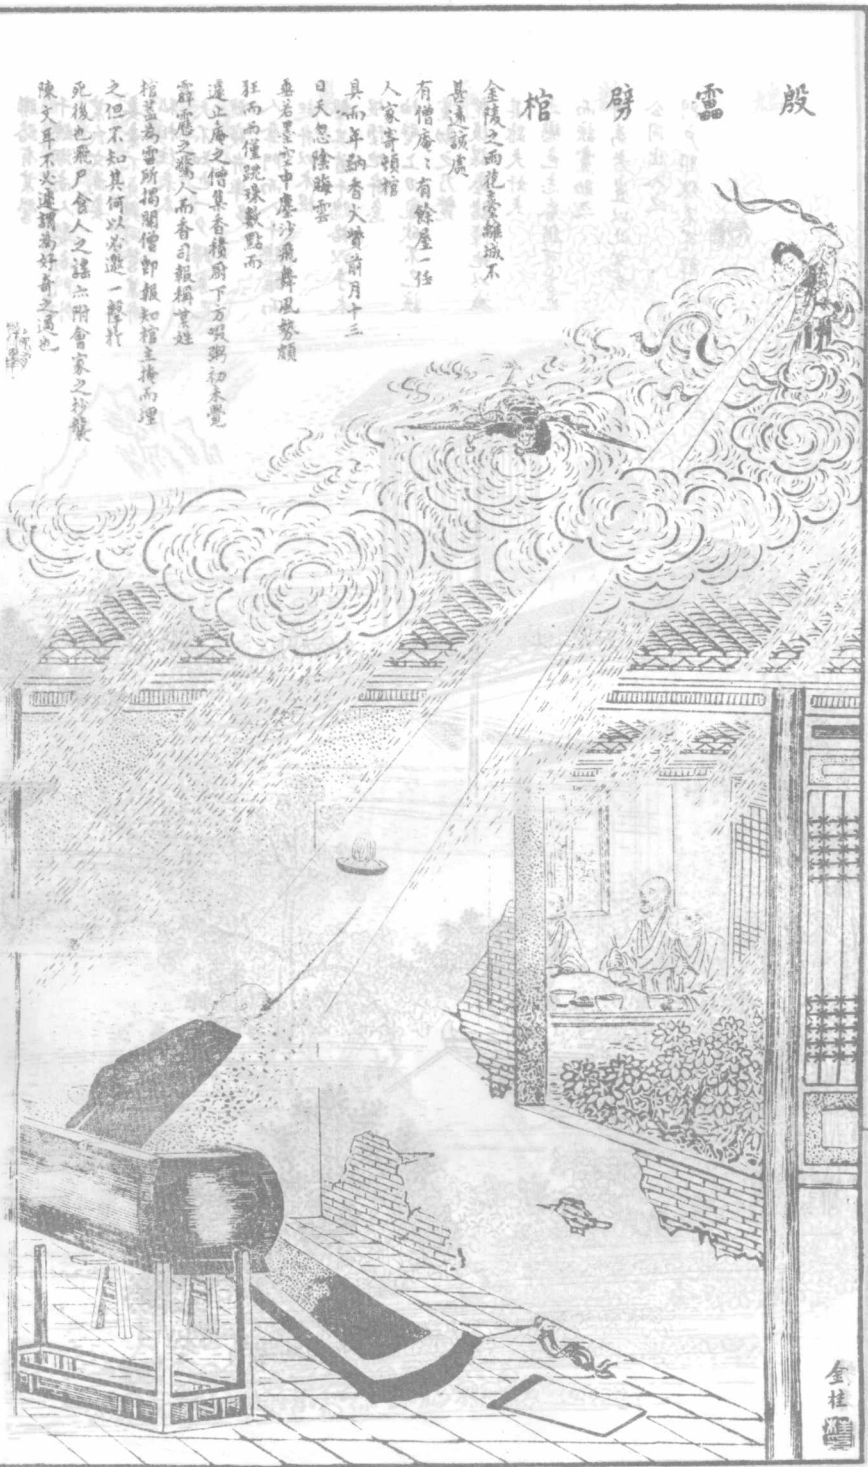 殷靁劈棺
金陵之雨花臺離城不
甚遠該處
有僧庵〻有餘屋一任
人家寄頓棺
具而年納香火貲前月十三
日天忽陰晦雲
垂若墨空中塵沙飛舞風勢頗
狂而雨僅跳珠數點而
還止庵之僧集香積厨下方啜粥初未覺
霹靂之驚人而香司報稱某姓
棺蓋為雷所揭開僧即報知棺主掩而埋
之但不知其何以必邀一擊於
死後也飛尸食人之謠亦附會家之抄襲
陳文耳不必遽謂為好奇之過也
金桂